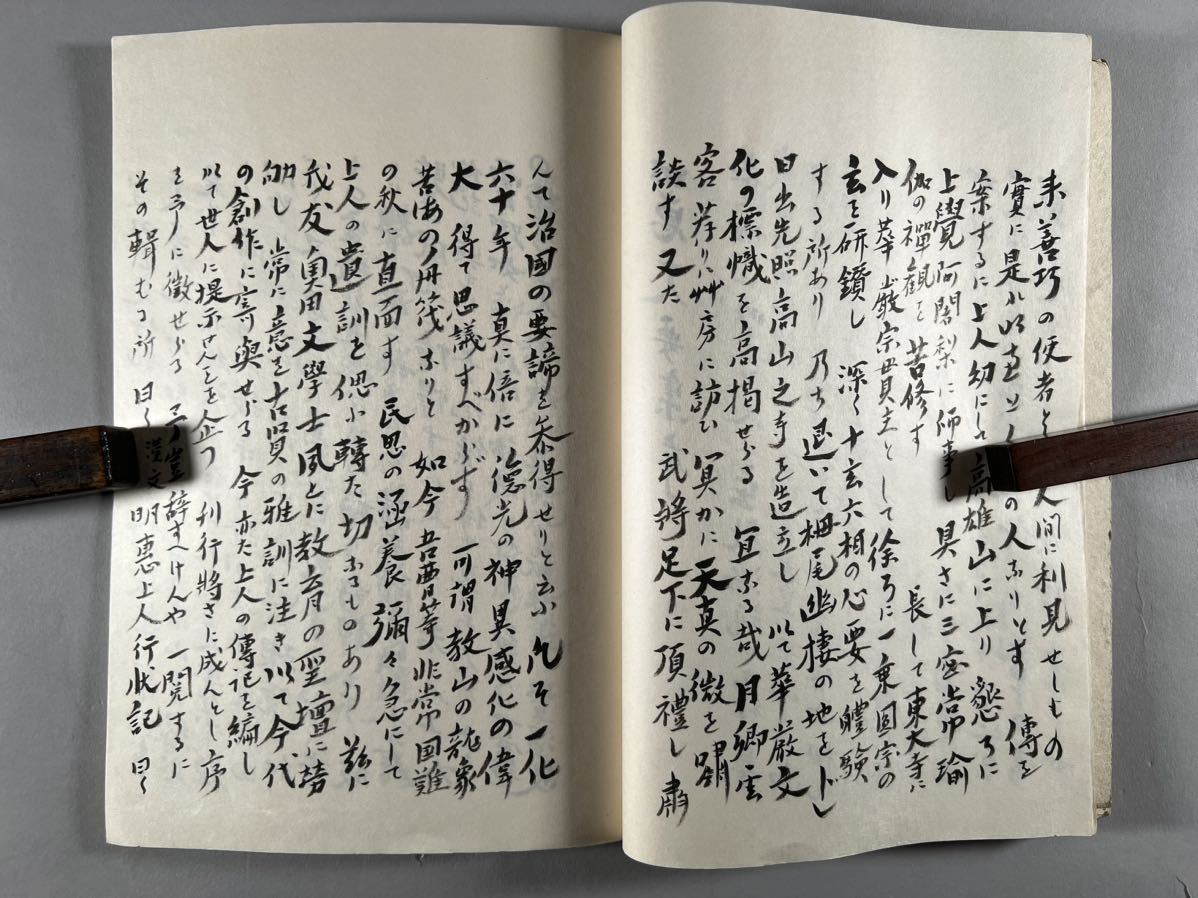 来善巧の便者と 人間に利見せしもの
實に是れ の人なりとす 傳を
案するに上人幼にして高雄山に上り 懇ろに
上覺阿闍梨に師事し 具さに三密常瑜
伽の禪観を苦修す 長して東大寺に
入り華嚴宗貫主として徐ろに一乗圓宗の
玄を研鑽し 深く十玄六相の心要を體驗
する所あり 乃ち退いて栂尾幽棲の地を卜し
日出先照高山之寺を造立し 以て華厳文
化の標幟を高揭せらる 宜なる哉月卿雲
客荐りに艸房に訪ひ 冥かに天真の微を嘱
談す 又た 武將足下に頂禮し 肅
んて治国の要諦を叅得せりと云ふ 凡そ一化
六十年 真に倍に 德光の神異感化の偉
大 得て思議すべからず 可謂教山の龍象
苦海の舟筏なりと 如今吾曹等非常国難
の秋に直面す 民思の涵養彌々急にして
上人の遺訓を偲ふ轉た切なるものあり 茲に
我友奥田文學士夙とに教育の聖壇に
勉し 常に意を古賢の雅訓に注き 以て今代
の創作に寄與せらる 今亦た上人の傳記を編し
以て世人に提示せんことを企つ 刊行將さに成んとし序
を予に徴せらる 予豈辞すへけんや 一閲するに
その輯むる所 曰く漢文明恵上人行状記 曰く